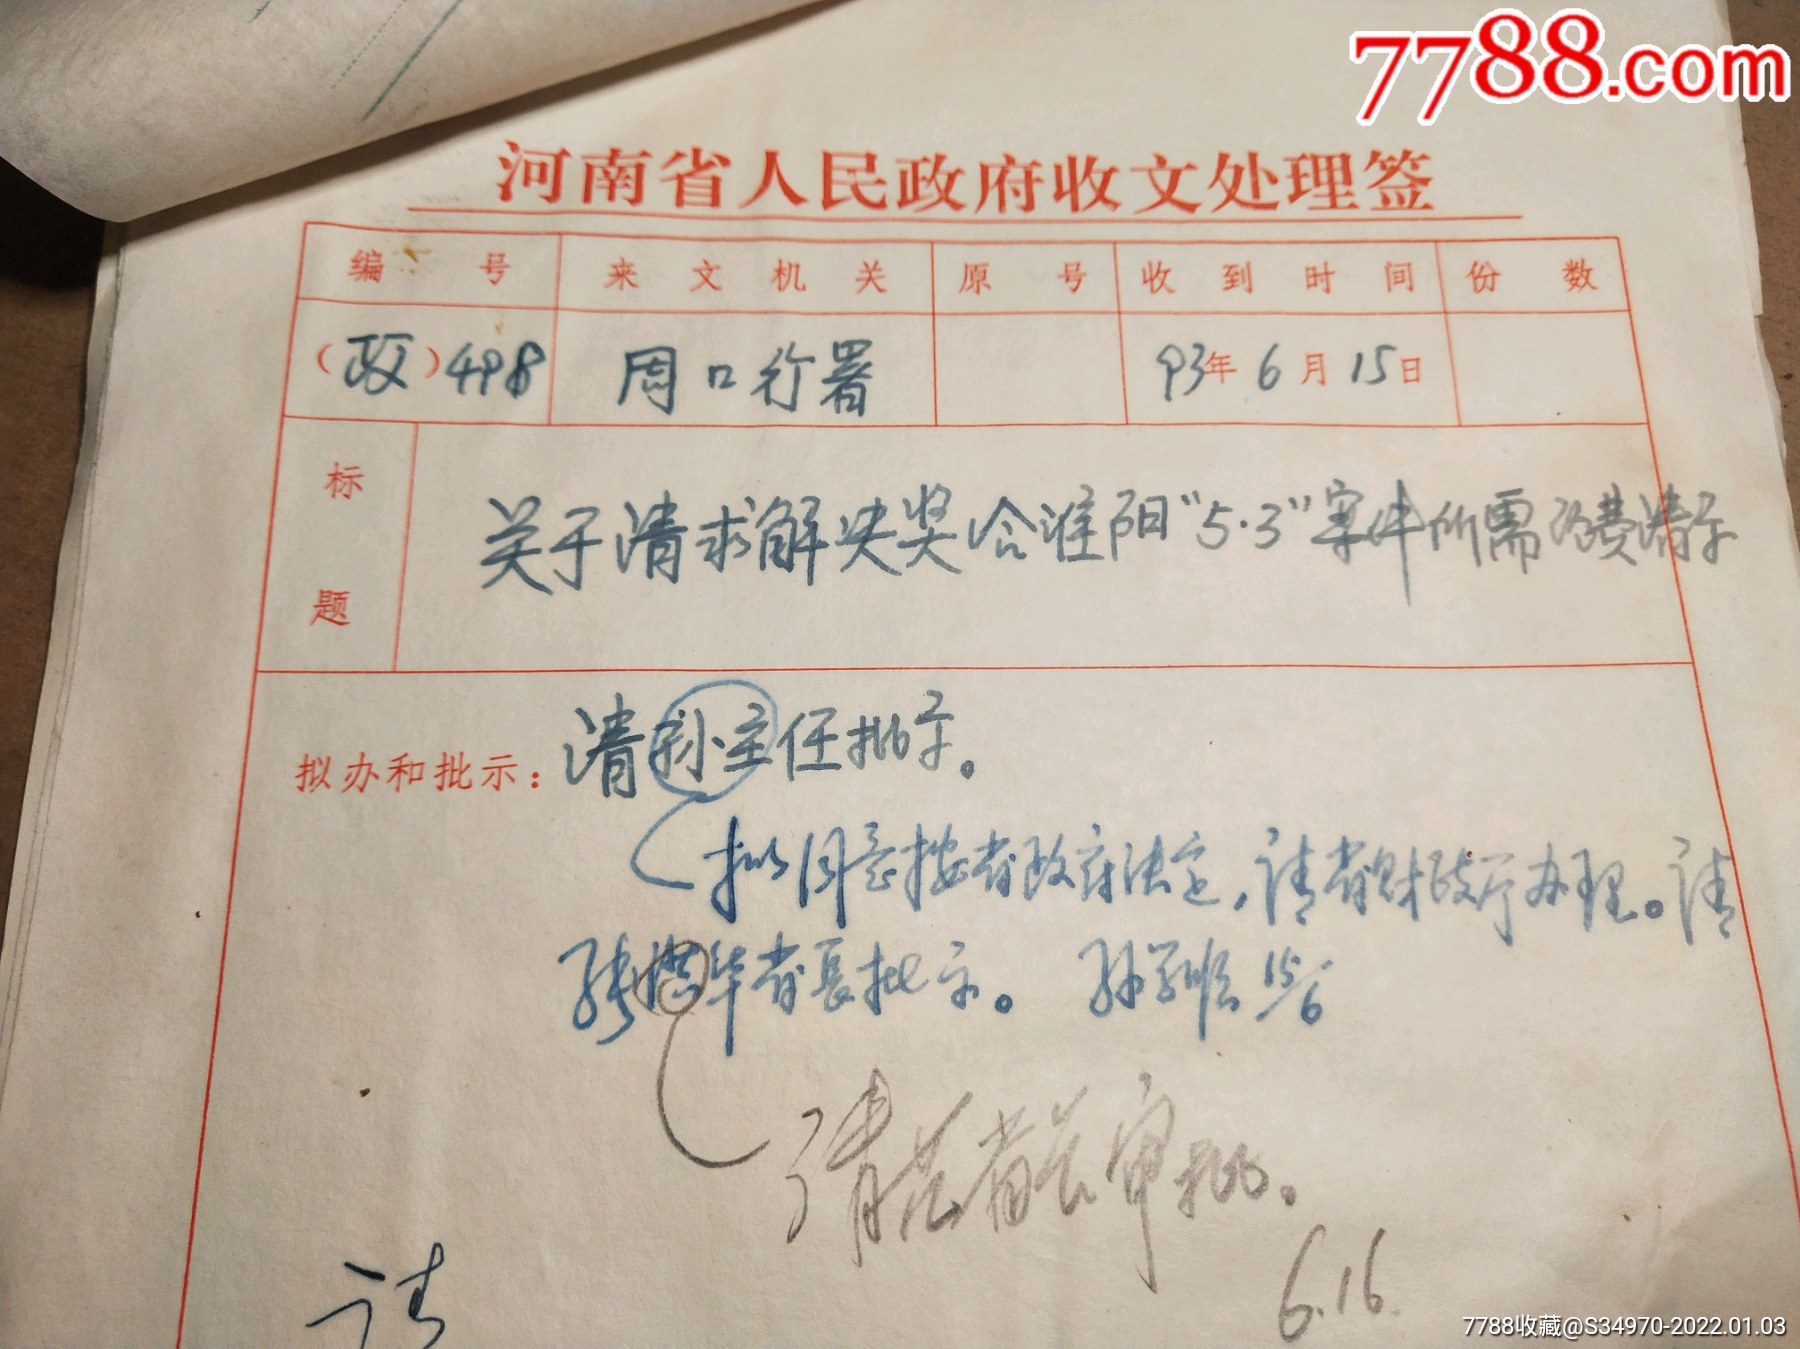 7788.com
河南省人民政府收文处理签
编号 来文机关 原号 收到时间 份数
(政)498 周口行署 93年6月15日
标题 关于请求解决奖 淮阳“5·3”案件所需 费请示
拟办和批示: 请孙主任批示。
拟同意按省政府决定,请省财政厅办理。请
张洪华省长批示。 孙学顺 15/6
请范省长审批。
6.16.
请
7788收藏@S34970-2022.01.03